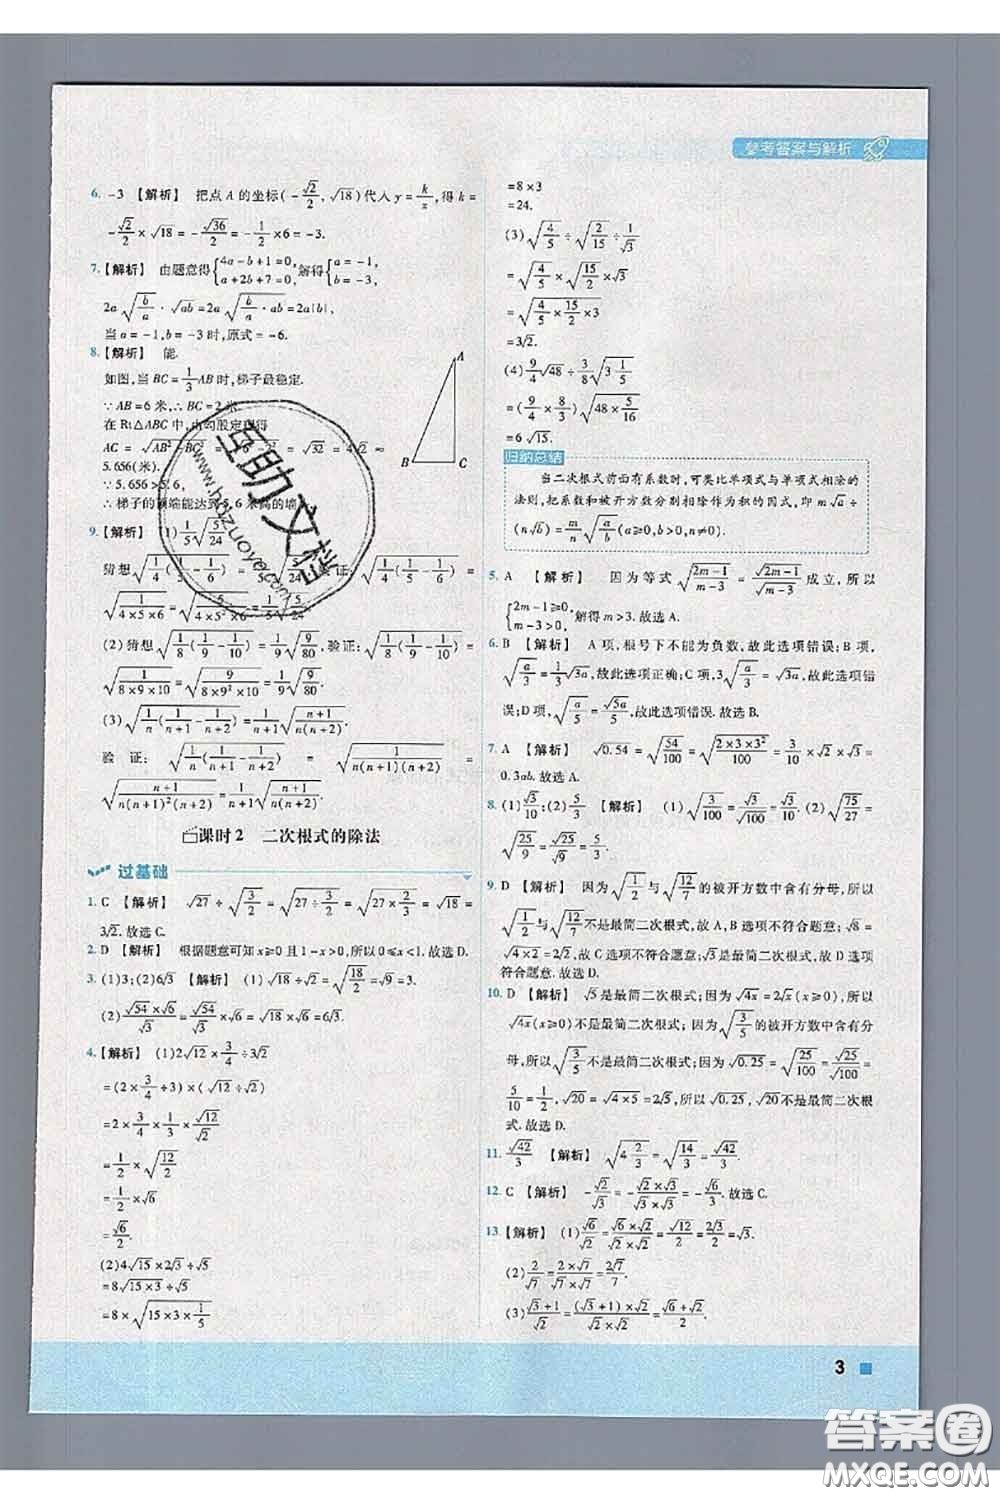 参考答案与解析
6. -3 【解析】 把点 A 的坐标(-√2/2, √18)代入 y=k/x, 得 k=
-√2/2×√18=-√36/2=-1/2×6=-3.
7.【解析】 由题意得{4a-b+1=0, a+2b+7=0, 解得{a=-1, b=-3.
2a√(b/a)·√ab=2a√(b/a·ab)=2a|b|,
当 a=-1,b=-3 时,原式=-6.
8.【解析】 能.
如图,当 BC=1/3AB 时,梯子最稳定.
∵AB=6米,∴BC=2米.
在 Rt△ABC 中,由勾股定理得
AC=√(AB²-BC²)=√(6²-2²)=√32=4√2≈
5.656(米).
∵5.656>5.6,
∴梯子的顶端能达到5.6米高的墙
A
B C
9.【解析】 (1)1/5√(5/24)
猜想√(1/4(1/5-1/6))=1/5√(5/24),验证:√(1/4(1/5-1/6))=
√(1/(4×5×6))=√(5/(4×5²×6))=1/5√(5/24).
(2)猜想√(1/8(1/9-1/10))=1/9√(9/80),验证:√(1/8(1/9-1/10))=
√(1/(8×9×10))=√(9/(8×9²×10))=1/9√(9/80).
(3)√(1/n(1/(n+1)-1/(n+2)))=1/(n+1)√((n+1)/(n(n+2))).
验证:√(1/n(1/(n+1)-1/(n+2)))=√(1/(n(n+1)(n+2)))=
√((n+1)/(n(n+1)²(n+2)))=1/(n+1)√((n+1)/(n(n+2))).
课时2 二次根式的除法
过基础
1. C 【解析】 √27÷√(3/2)=√(27÷3/2)=√(27×2/3)=√18=
3√2.故选C.
2. D 【解析】 根据题意可知 x≥0 且 1-x>0,所以 0≤x<1.故选D.
3. (1)3;(2)6√3 【解析】 (1)√18÷√2=√(18/2)=√9=3.
(2)√54×√6/√3=√54/√3×√6=√18×√6=6√3.
4.【解析】 (1)2√12×3/4÷3√2
=(2×3/4÷3)×(√12÷√2)
=1/2×√12/√2
=1/2×√(12/2)
=1/2×√6
=√6/2.
(2)4√15×2√3÷√5
=8√(15×3)÷√5
=8×√(15×3×1/5)
=8×3
=24.
(3)√(4/5)÷√(2/15)÷1/√3
=√(4/5)×√(15/2)×√3
=√(4/5×15/2×3)
=3√2.
(4)9/4√48÷3/8√(3 1/5)
=(9/4×8/3)√(48×5/16)
=6√15.
归纳总结
当二次根式前面有系数时,可类比单项式与单项式相除的
法则,把系数和被开方数分别相除作为积的因式,即 m√a÷
(n√b)=m/n√(a/b)(a≥0,b>0,n≠0).
5. A 【解析】 因为等式√((2m-1)/(m-3))=√(2m-1)/√(m-3)成立,所以
{2m-1≥0, m-3>0, 解得 m>3.故选A.
6. B 【解析】 A项,根号下不能为负数,故此选项错误;B项,
√(a/3)=1/3√3a,故此选项正确;C项,√(a/3)=1/3√3a,故此选项错
误;D项,√(a/5)=√5a/5,故此选项错误.故选B.
7. A 【解析】 √0.54=√(54/100)=√(2×3×3²/100)=3/10×√2×√3=
0.3ab.故选A.
8. (1)√3/10;(2)5/3 【解析】 (1)√(3/100)=√3/√100=√3/10. (2)√(75/27)=
√(25/9)=√25/√9=5/3.
9. D 【解析】 因为√(1/2)与√(12/7)的被开方数中含有分母,所以
√(1/2)与√(12/7)不是最简二次根式,故A,B选项不符合题意;√8=
√(4×2)=2√2,所以C选项不符合题意;√5是最简二次根式,故D选项
符合题意.故选D.
10. D 【解析】 √5是最简二次根式;因为√4x=2√x(x≥0),所以
√4x(x≥0)不是最简二次根式;因为√(3/5)的被开方数中含有分
母,所以√(3/5)不是最简二次根式;因为√0.25=√(25/100)=√25/√100=
5/10=1/2,√20=√(4×5)=2√5,所以√0.25,√20不是最简二次根
式.故选D.
11. √42/3 【解析】 √(4 2/3)=√(14/3)=√42/3.
12. C 【解析】 -√2/√3=-√2×√3/(√3×√3).故选C.
13.【解析】 (1)√6/√2=√6×√2/(√2×√2)=√12/2=2√3/2=√3.
(2)2/√7=2×√7/(√7×√7)=2√7/7.
(3)(√3+1)/√2=(√3+1)×√2/(√2×√2)=(√6+√2)/2.
3
互助文档
www.hzuoye.com
答案圈
MXQE.COM